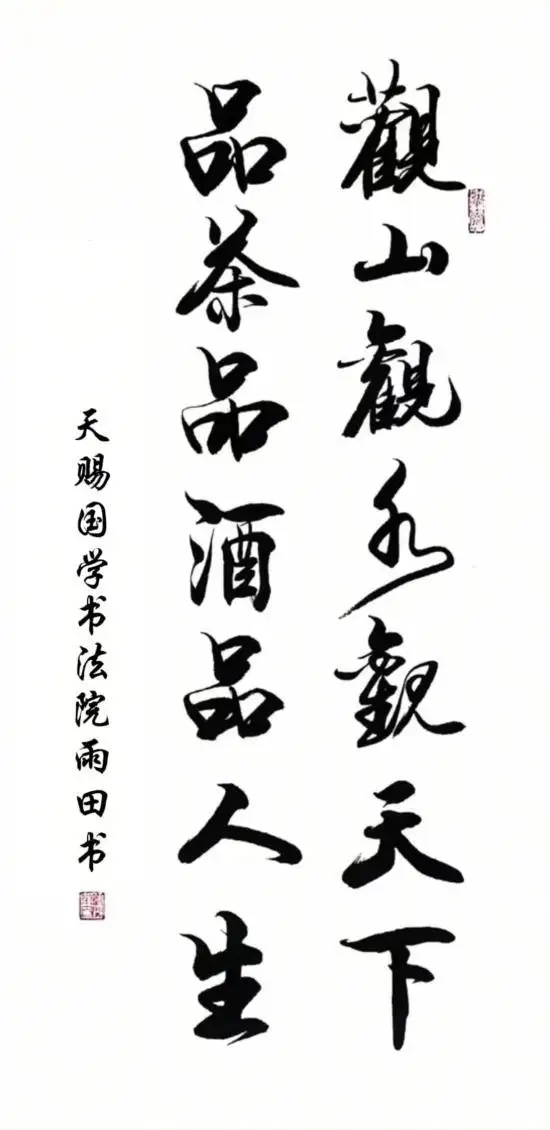 觀山觀水觀天下
品茶品酒品人生
天赐国学书法院雨田书